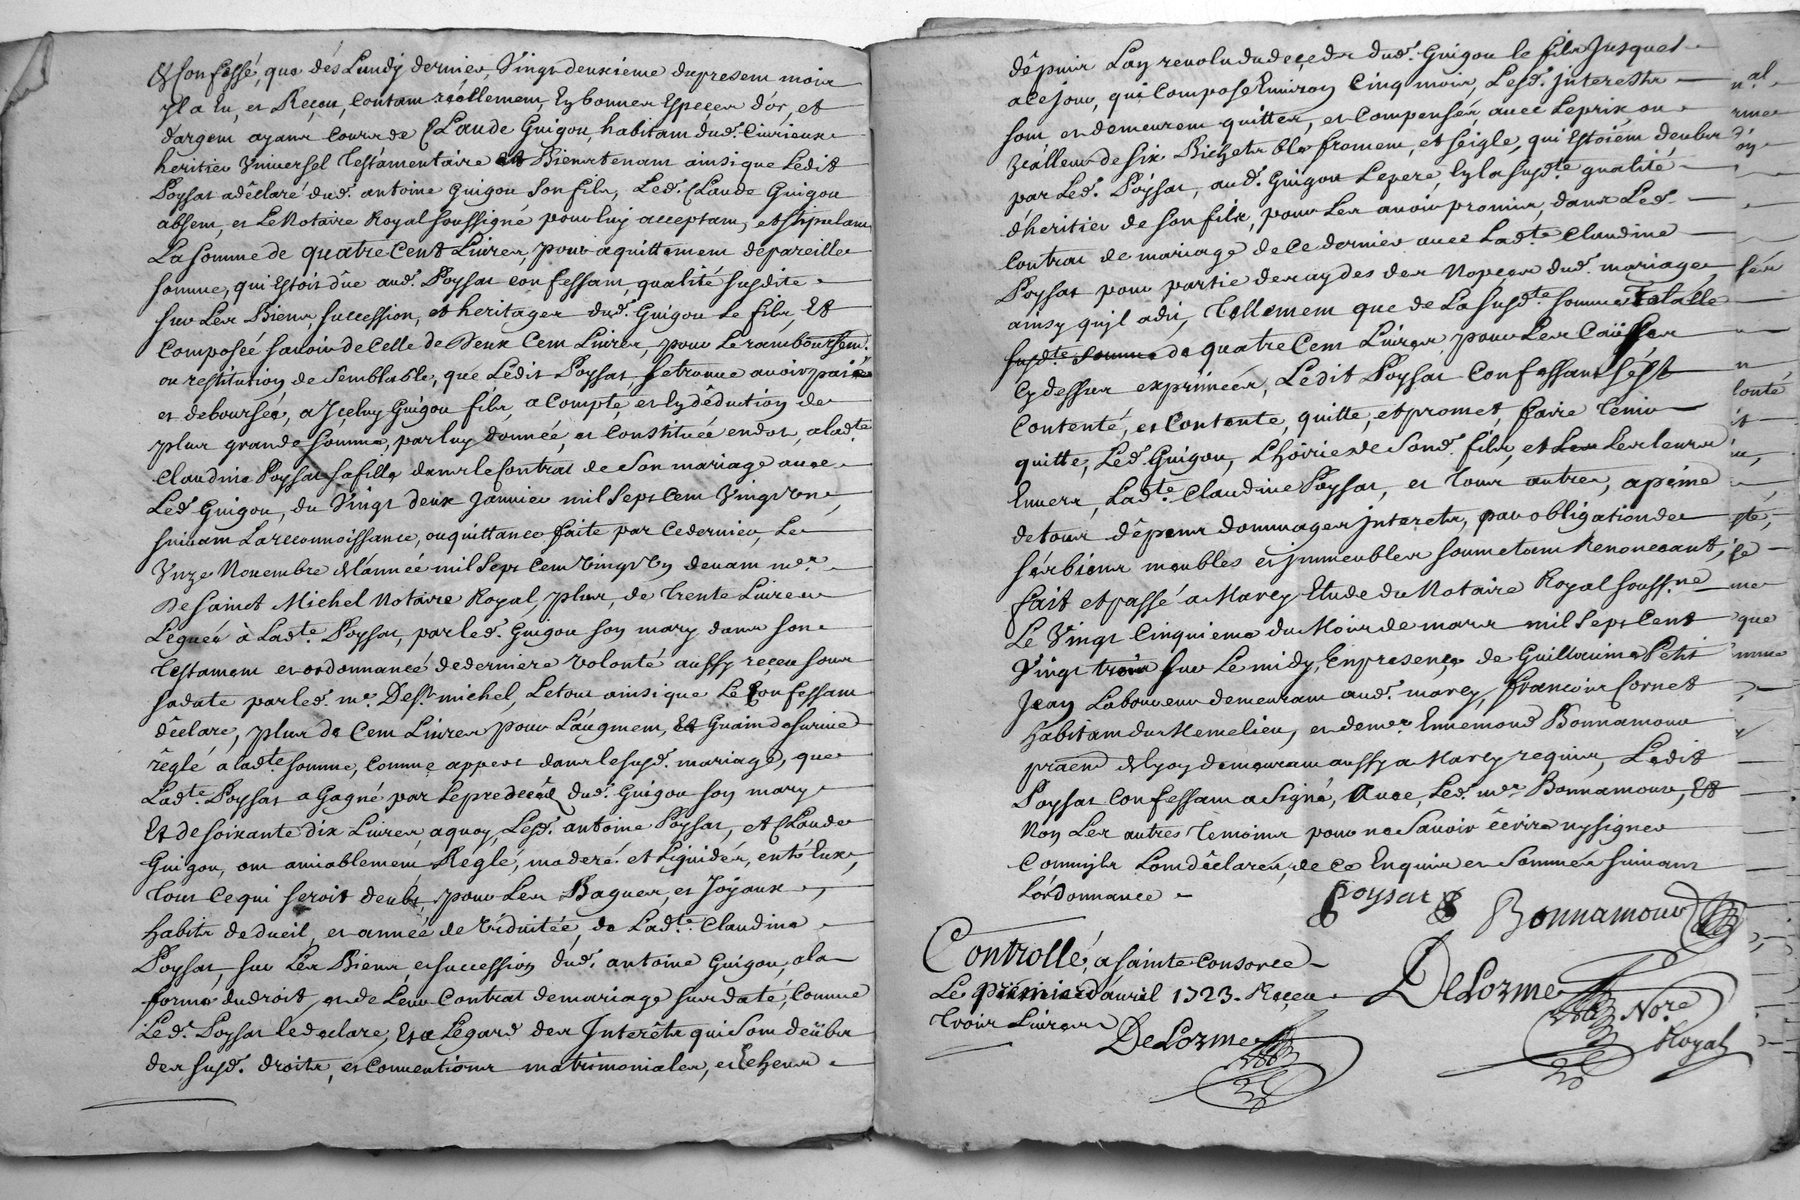 & Confessé, que dés Lundy dernier, Vingt deuxieme du present mois
yl a Eu, et Reçeu, Contant réellement, En bonnes Espeçes d'or, et
d'argent ayant Cours de Claude Guigou, habitant dud. Civrieux
heritier Vniversel Testamentaire et Bienstenant ainsi que Ledit
Poysat a déclaré dud. antoine Guigou Son fils, Led. Claude Guigou
absent, et Le Notaire Royal soussigné pour luy acceptant, et stipulant
La somme de quatre Cent Livres, pour aquittement de pareille
somme, qui Estoit düe aud. Poysat confessant, qualité susdite
sur Les Biens, succession, et heritages dud. Guigou Le fils, Et
Composée sauoir de Celle de Deux Cent Livres, pour Le remboursemt.
ou restitution de Semblable, que Ledit Poysat se trouue auoir payé
et deboursée, a Jceluy Guigou fils, a Compte, et En déduction de
plus grande somme, par luy donnée, et Constituée en dot, a ladte.
Claudine Poysat sa fille dans le Contrat de Son mariage auec
Led. Guigou, du Vingt deux Januier mil Sept Cent Vingt Vn,
suiuant La reconnoissance, ou quittance faite par Ce dernier, Le
Vnze Nouembre de l'année mil Sept Cent Vingt Vn deuant me.
De Sainct Michel Notaire Royal, plus, de Trente Livres
Leguée à Ladte. Poysat, par led. Guigou son mary dans son
Testament et ordonnance de derniere Volonté aussy reçeu sous
sa date par led. me. De St. michel, Le tout ainsi que Le Confessant
déclare, plus de Cent Livres pour L'augment, Et Guain de suruie
réglé a ladte. somme, Comme appert dans le susd. mariage, que
Ladte. Poysat a Gagné par Le predecés dud. Guigou son mary
Et de soixante dix Livres, a quoy, Lesd. antoine Poysat, et Claude
Guigou, ont amiablement Réglé, moderé et Liquidée, entr'Eux,
Tout Ce qui seroit deubt, pour Les Bagues, et Joyaux,
habits de dueil, et année de Viduitée, de Ladte. Claudine
Poysat, sur Les Biens, et succession dud. antoine Guigou, a la
forme du droit, et de Leur Contrat de mariage susdaté, Comme
Led. Poysat le declare, Et a L'egard des Interêts qui sont deübs
des susd. droits, et Conuentions matrimoniales, et Echeus
dépuis L'an reuolu du deçeds dud. Guigou le fils Jusques
a Ce jour, qui Compose Enuiron Cinq mois, Lesd. Jnterests
sont et demeurent quittes, et Compensés auec Le prix, ou
Valleur de six Bichets blé froment, et seigle, qui Estoient deubs
par Led. Poysat, aud. Guigou Le pere, En la susdte. qualité
d'heritier de son fils, pour Les auoir promis, dans Led.
Contrat de mariage de Ce dernier auec Ladte. Claudine
Poysat pour partie des aydes des Nopçes dud. mariage
ainsy qu'jl a dit, Tellement que de La susdte. somme Totalle
susdte. somme de quatre Cent Livres, pour Les Causes
Cy dessus exprimées, Ledit Poysat Confessant s'est
Contenté, et Contente, quitte, et promet, faire Tenir
quitte, Led. Guigou, L'hoirie de Sond. fils, et Les Leurs
Enuers, Ladte. Claudine Poysat, et Tous autres, a peine
de tous dépens dommages jnterets, par obligation de
ses biens meubles et jmmeubles soumetant Renoncant,
fait et passé a Marcy Etude du Notaire Royal souss.ne
Le Vingt Cinquieme du Mois de mars mil Sept Cent
Vingt trois sur Le midy, En presençe de Guillaume Petit
Jean Laboureur demeurant aud. marcy, francois Cornet
habitant du Meme lieu, et de me. Ennemond Bonnamour
praend de Lyon demeurant aussy a Marcy requis, Ledit
Poysat Confessant a signé, Auec, Led. me. Bonnamour, Et
Non Les autres Temoins pour ne Sauoir écrire ny signer
Comm'jls L'ont déclarés, de Ce Enquis et Sommés suiuant
L'ordonnance
Poysat Bonnamour
Controllé, a sainte Consorce
Le premier d'auril 1723. Reçeu
Trois Liures
DeLorme
DeLorme
Nore.
Royal